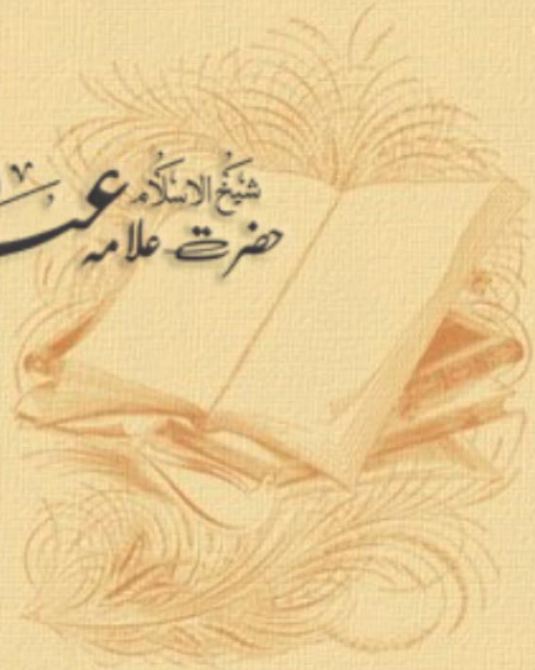 شیخ الاسلام
حضرت علامہ